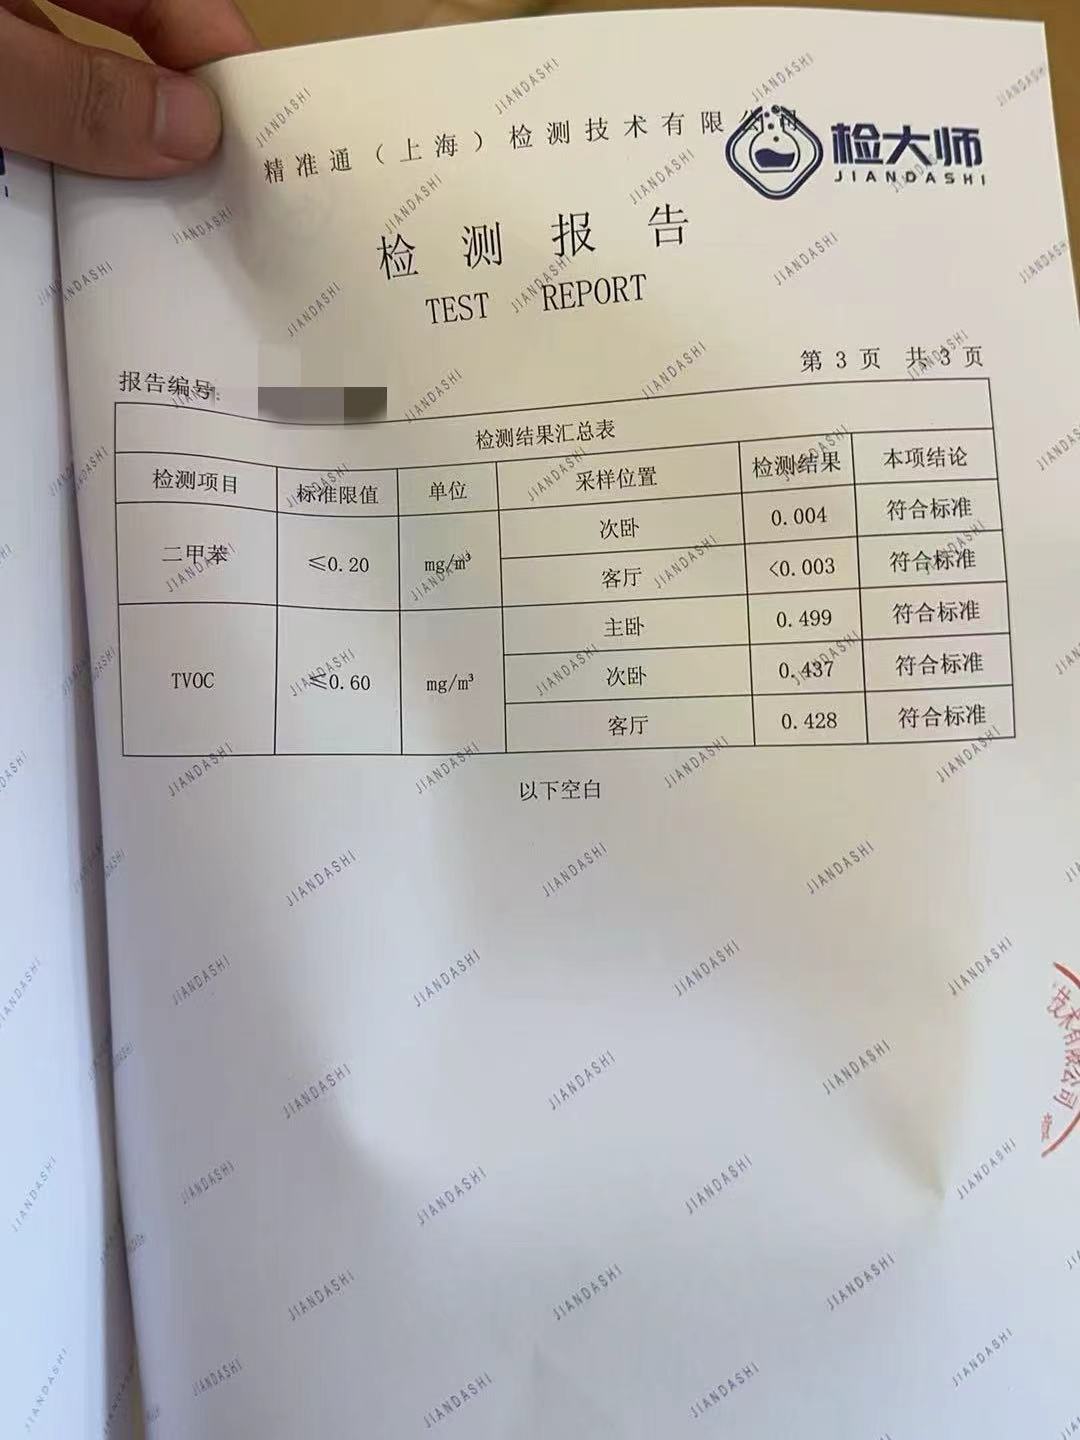 精准通（上海）检测技术有限公司
检大师
JIANDASHI
检测报告
TEST REPORT
第 3 页 共 3 页
报告编号:
检测结果汇总表
检测项目 标准限值 单位 采样位置 检测结果 本项结论
二甲苯 ≤0.20 mg/m³ 次卧 0.004 符合标准
客厅 <0.003 符合标准
TVOC ≤0.60 mg/m³ 主卧 0.499 符合标准
次卧 0.437 符合标准
客厅 0.428 符合标准
以下空白
技术有限公司
章